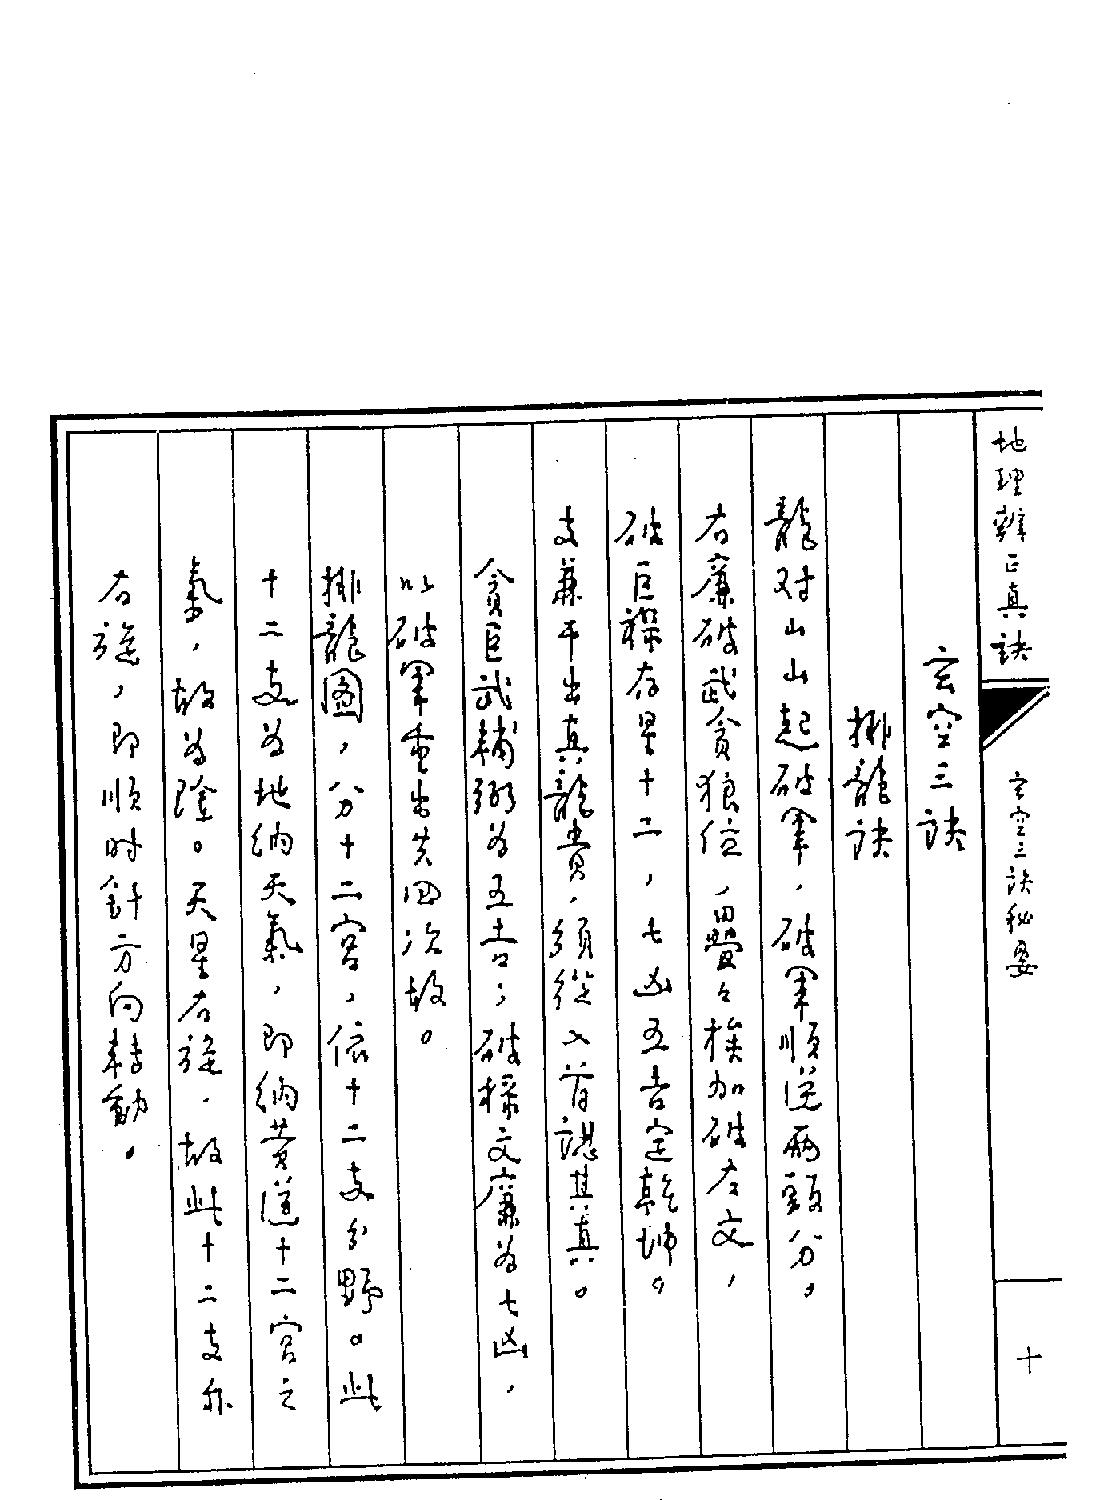 地理辨正真訣
玄空三訣秘要
十
玄空三訣
排龍訣
龍对山山起破軍，破軍順逆兩頭分。
右廉破武貪狼位，疊々挨加破左文，
破巨祿存星十二，七凶五吉定乾坤。
支兼干出真龍貴，須從入首認其真。
貪巨武輔弼为五吉，破祿文廉为七凶，
以破軍重出共四次故。
排龍圖，分十二宮，依十二支分野。此
十二支为地納天氣，即納黃道十二宮之
氣，故为陰。天星右旋，故此十二支亦
右旋，即順时針方向轉動。